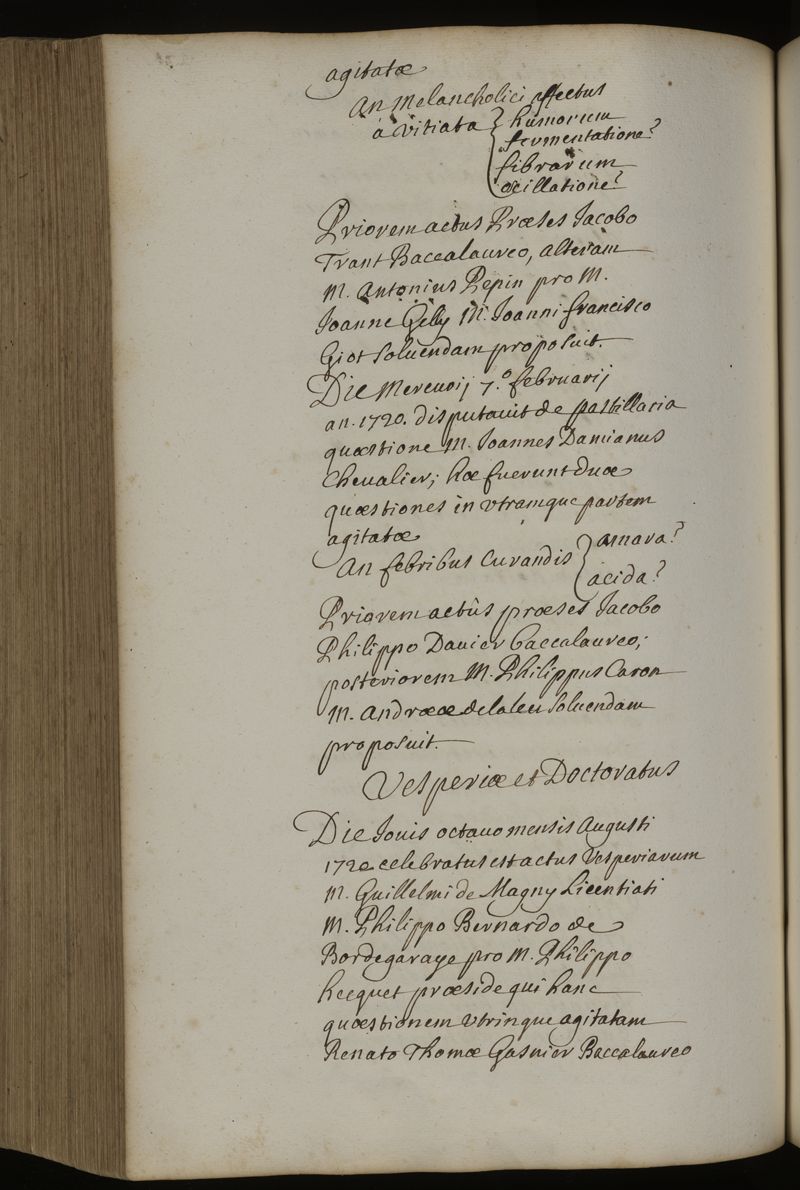 agitatæ
An Melancholici affectus
a vitiata { humorum
fermentatione?
fibrarum
oscillatione?
Priorem actus Præses Jacobo
Trant Baccalaureo, alteram
M. Antonius Pepin pro M.
Joanne Gelly M. Joanni francisco
Giot soluendam proposuit.
Die Mercurij 7.º februarij
an. 1720. disputauit de pastillaria
quæstione M. Joannes Damianus
Cheualier; hæ fuerunt duæ
quæstiones in vtramque partem
agitatæ
An febribus Curandis { amara?
acida?
Priorem actûs præses Jacobo
Philippo Dauier baccalaureo;
posteriorem M. Philippus Caron
M. Andreæ delaleu soluendam
proposuit.
Vesperiæ et Doctoratus
Die Jouis octauo mensis Augusti
1720 celebratus est actus Vesperiarum
M. Guillelmi de Magny Licentiati
M. Philippo Bernardo de
Bordegaraye pro M. Philippo
hecquet præside qui hanc
quæstionem vtrinque agitatam
Renato Thomæ Gasnier Baccalaureo